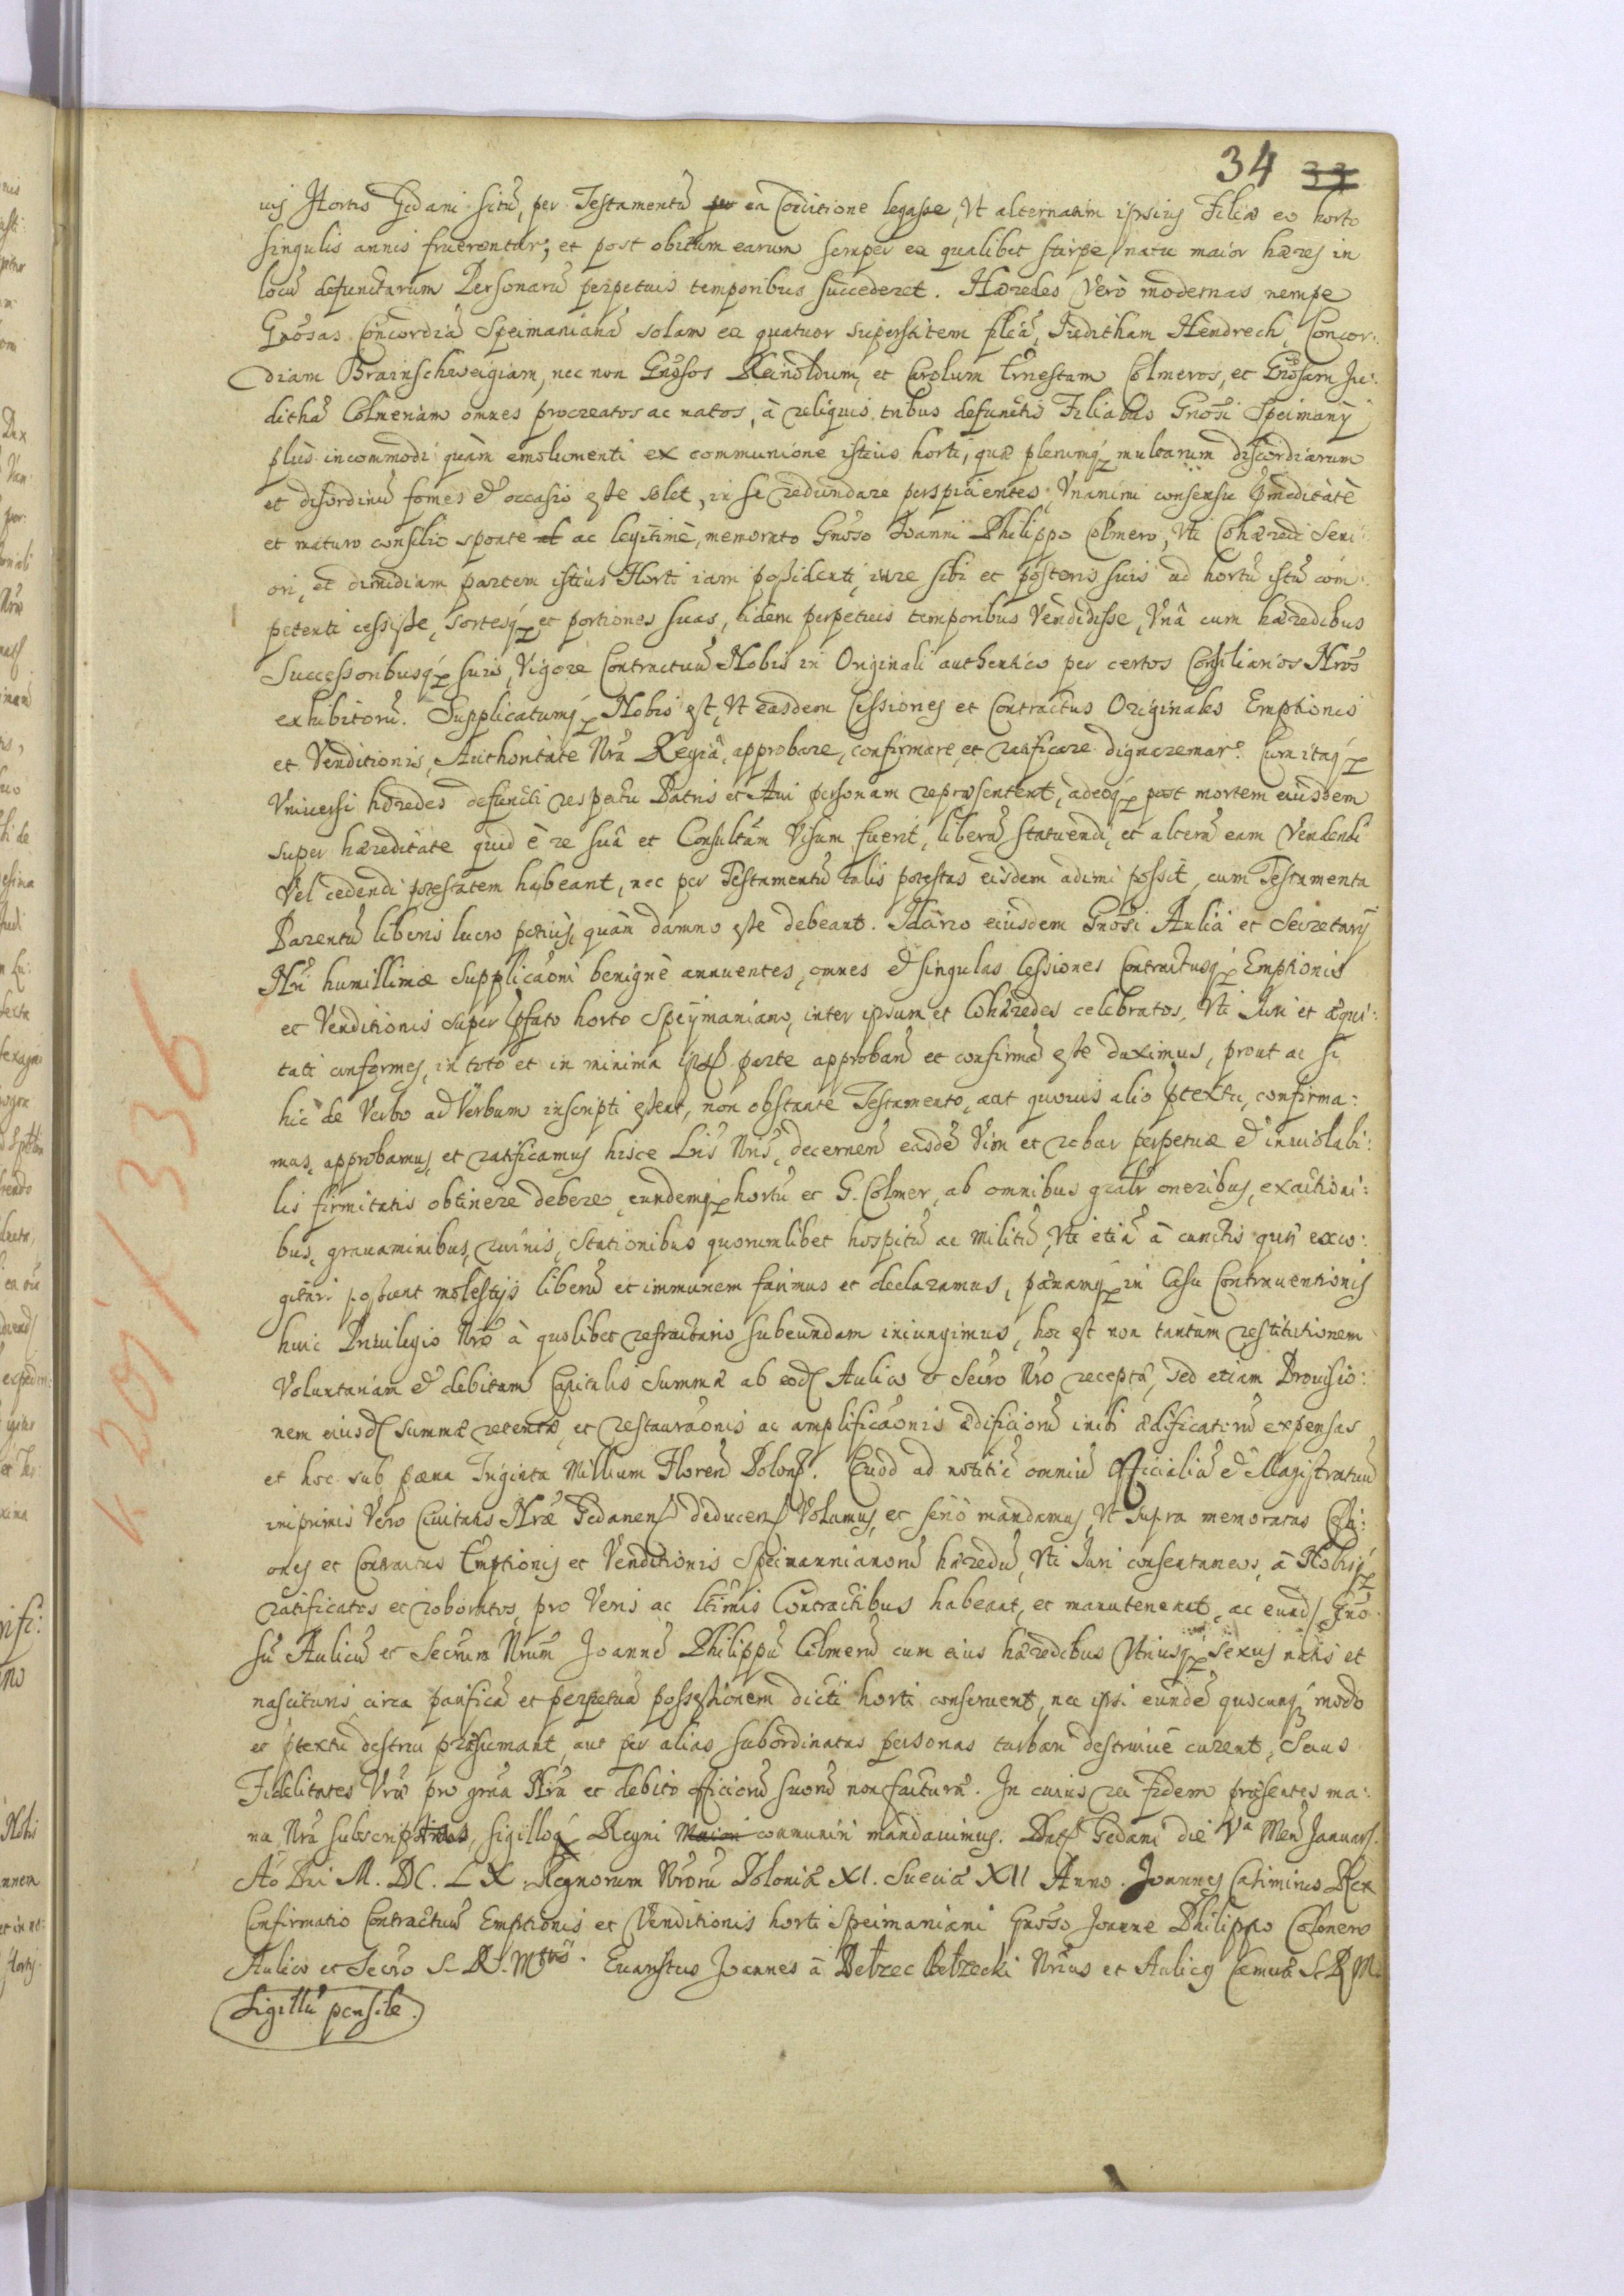 34 33
uis Hortis Gedani sitū, per Testamentū per ea Conditione legasse, Vt alternatim ipsius Filiæ eo horto
singulis annis fruerentur, et post obitum earum semper ex qualibet stirpe natu maior hæres in
locū defunctarum Personarū perpetuis temporibus succederet. Hæredes Verò modernas nempe
Gnosas Concordiā Speimanianā solam ex quatuor superstitem filiā, Juditham Hendrech, Concor:
diam Brainschweigiam, nec non Gnosos Reinoldum, et Carolum Ernestum Colmeros, et Gnosam Ju:
dithā Colmeriam omnes procreatos ac natos, à reliquis tribus defunctis Filiabus Gnosi Speimanij
plùs incommodi quàm emolumenti ex communione istius horti, quæ plerumq multarum discordiarum
et disordinū fomes et occasio esse solet, in se redundare perspicientes, Vnanimi consensu pmeditatè
et maturo consilio sponte et ac legitimè, memorato Gnoso Ioanni Philippo Colmero, Vti Cohæredi Seni
ori, et dimidiam partem istius Horti iam possidenti, iure sibi et posteris suis ad hortū istū com:
petenti cessisse, sortesq et portiones suas, eidem perpetuis temporibus Vendidisse, Vnâ cum hæredibus
Successoribusq suis, Vigore Contractuū Nobis in Originali authentico per certos Consiliarios Nros
exhibitorū. Supplicatumq Nobis est, Vt easdem Cessiones et Contractus Originales Emptionis
et Venditionis, Authoritate Nrā Regiâ, approbare, confirmare, et ratificare dignaremur. Cum itaq
Vniuersi hæredes defuncti respectu Patris et Aui personam repræsentent, adeoq post mortem eiusdem
super hæreditate quid è re suâ et Consultum Visum fuerit, liberā statuendi, et alterū eam Vendendi
Vel cedendi potestatem habeant, nec per Testamentū talis potestas eisdem adimi possit, cum Testamenta
Parentū liberis lucro potius, quàm damno esse debeant. Idcirco eiusdem Gnosi Aulici et Secretarij
Nri humillimæ supplicaoni benignè annuentes, omnes et singulas Cessiones Contractusq Emptionis
et Venditionis super pfato horto Speymaniano, inter ipsum et Cohæredes celebratos, Vti Juri et æqui:
tati conformes, in toto et in minima parte approband et confirmād esse duximus, prout ac si
hic de Verbo ad Verbum inscripti essent, non obstante Testamento, aut quouis alio ptextu, confirma:
mus, approbamus, et ratificamus hisce Lris Nris, decernen easdē Vim et robur perpetuæ et inuiolabi:
lis firmitatis obtinere debere, eundemq hortū et G. Colmer, ab omnibus gnalr oneribus, exactioni:
bus, grauaminibus, ruinis, stationibus quorumlibet hospitū ac militū, Vti etiā à cunctis quæ exco:
gitari possunt molestijs liberū et immunem facimus et declaramus, pænamq in Casu Contrauentionis
huic Priuilegio Nrō à quolibet refractario subeundam iniungimus, hoc est non tantùm restitutionem
Voluntariam et debitam Capitalis summæ ab eod Aulico et Secro Nro receptæ, sed etiam Prouisio:
nem eiusd summæ retentæ, et restauraonis ac amplificaonis ædificiorū inibi ædificatorū expensas
et hoc sub pæna Triginta Millium Floren Polon. Quod ad notitiā omniū Officialiū et Magistratuū
inprimis Vero Ciuitatis Nræ Gedanen deducen Volumus, et seriò mandamus, Vt supra memoratas Cessi:
ones et Contractus Emptionis et Venditionis Speimannianorū hæredū, Vti Juri consentaneos, à Nobisq
ratificatos et roboratos, pro Veris ac ltimis Contractibus habeant, et manuteneant, ac eund Gno
sū Aulicū et Secrum Nrum Joannē Philippū Colmerū cum eius hæredibus Vtriusq sexus natis et
nascituris circa pacificā et perpetuā possessionem dicti horti conseruent, nec ipsi eundē quocunq modo
et ptextu destrui præsumant, aut per alias subordinatas personas turbari destruiue curent, Secus
Fidelitates Vræ pro gratia Nra et debito officiorū suorū non facturæ. In cuius rei fidem præsentes ma:
nu Nrā subscriptas, sigilloq Regni Maiori communiri mandauimus. Dat Gedani die Va Men Januarij.
Aō Dni M. DC. LX. Regnorum Nrorū Poloniæ XI. Sueciæ XII Anno. Joannes Casimirus Rex
Confirmatio Contractuū Emptionis et Venditionis horti Speimaniani Gnoso Joanne Philippo Colmero
Aulico et Secro S. R. Mtis. Euaristus Joannes à Belzec Belzecki Nrius et Aulicq Cameræ S R M.
Sigillū pensile.
K 201/336